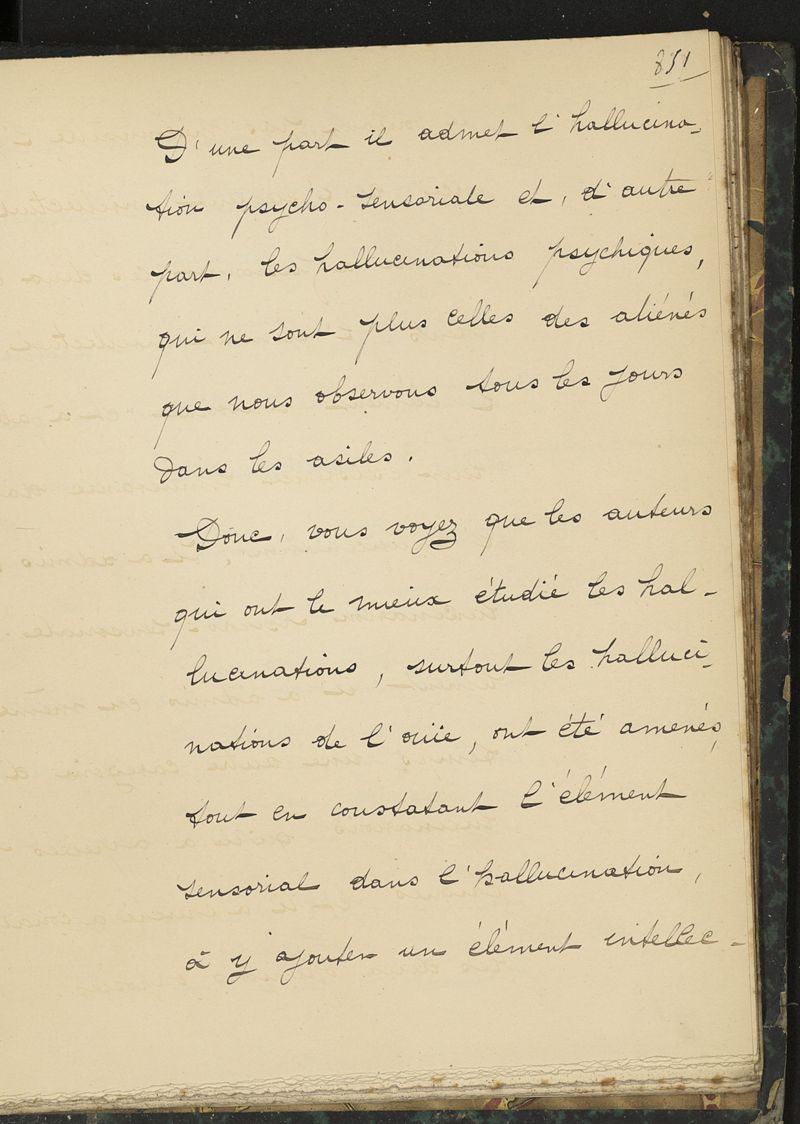 851
D'une part il admet l'hallucina-
tion psycho-sensoriale et, d'autre
part, les hallucinations psychiques,
qui ne sont plus celles des aliénés
que nous observons tous les jours
dans les asiles.
Donc, vous voyez que les auteurs
qui ont le mieux étudié les hal-
lucinations, surtout les halluci-
nations de l'ouïe, ont été amenés,
tout en constatant l'élément
sensorial dans l'hallucination,
à y ajouter un élément intellec-